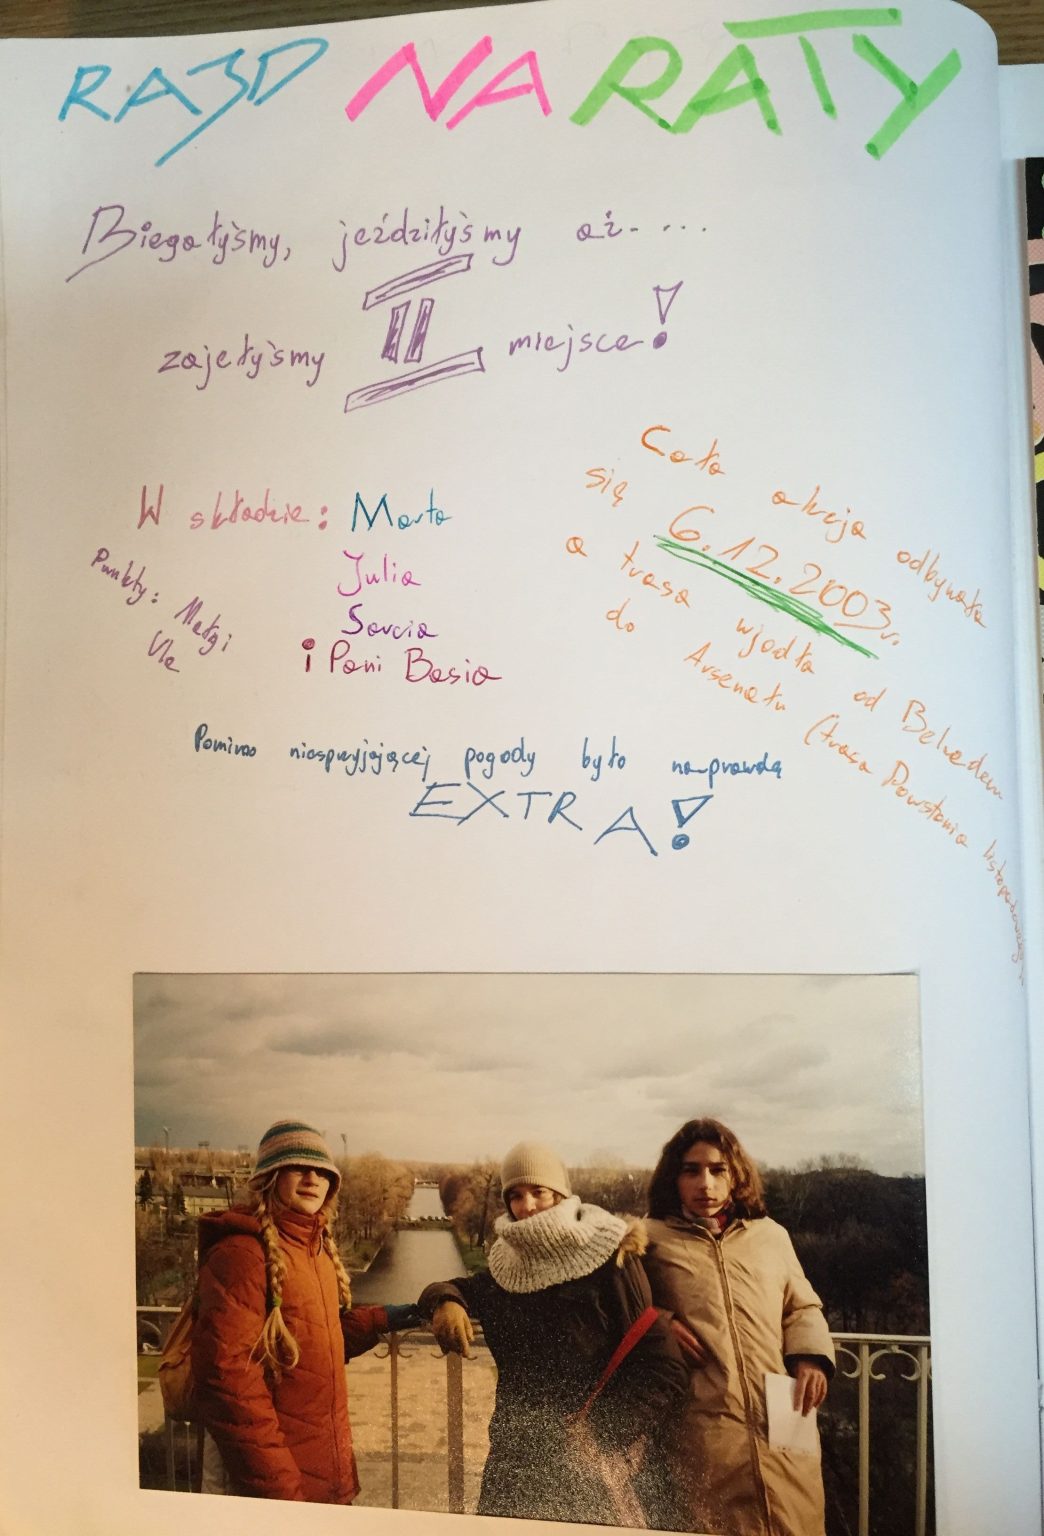 RAJD NA RATY
Biegałyśmy, jeździłyśmy aż....
zajełyśmy II miejsce!
W składzie: Marta
Julia
Sarcia
i Pani Basia
Punkty: Małgi
Ula
Cała akcja odbywała
się 6.12.2003r.
a trasa wjodła od Belwederu
do Arsenału (trasa Powstania listopadowego)
Pomimo niesprzyjającej pogody było naprawdą
EXTRA!